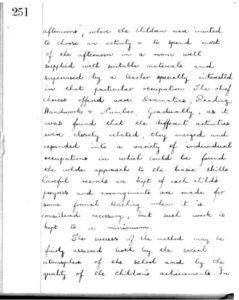 251
afternoons", where the children are invited
to choose an activity & to spend most
of the afternoon in a room well
supplied with suitable materials and
supervised by a teacher specially interested
in that particular occupation. The chief
choices offered were Dramatics, Reading,
Handwork & Number. Gradually, as it
was found that the different activities
were closely related, they merged and
expanded into a variety of individual
occupations in which could be found
the whole approach to the basic skills.
Careful records are kept of each child's
progress and arrangements are made for
some formal teaching when it is
considered necessary, but such work is
kept to a minimum.
The success of the method may be
fairly assessed both by the social
atmosphere of the school and by the
quality of the children's achievements. In